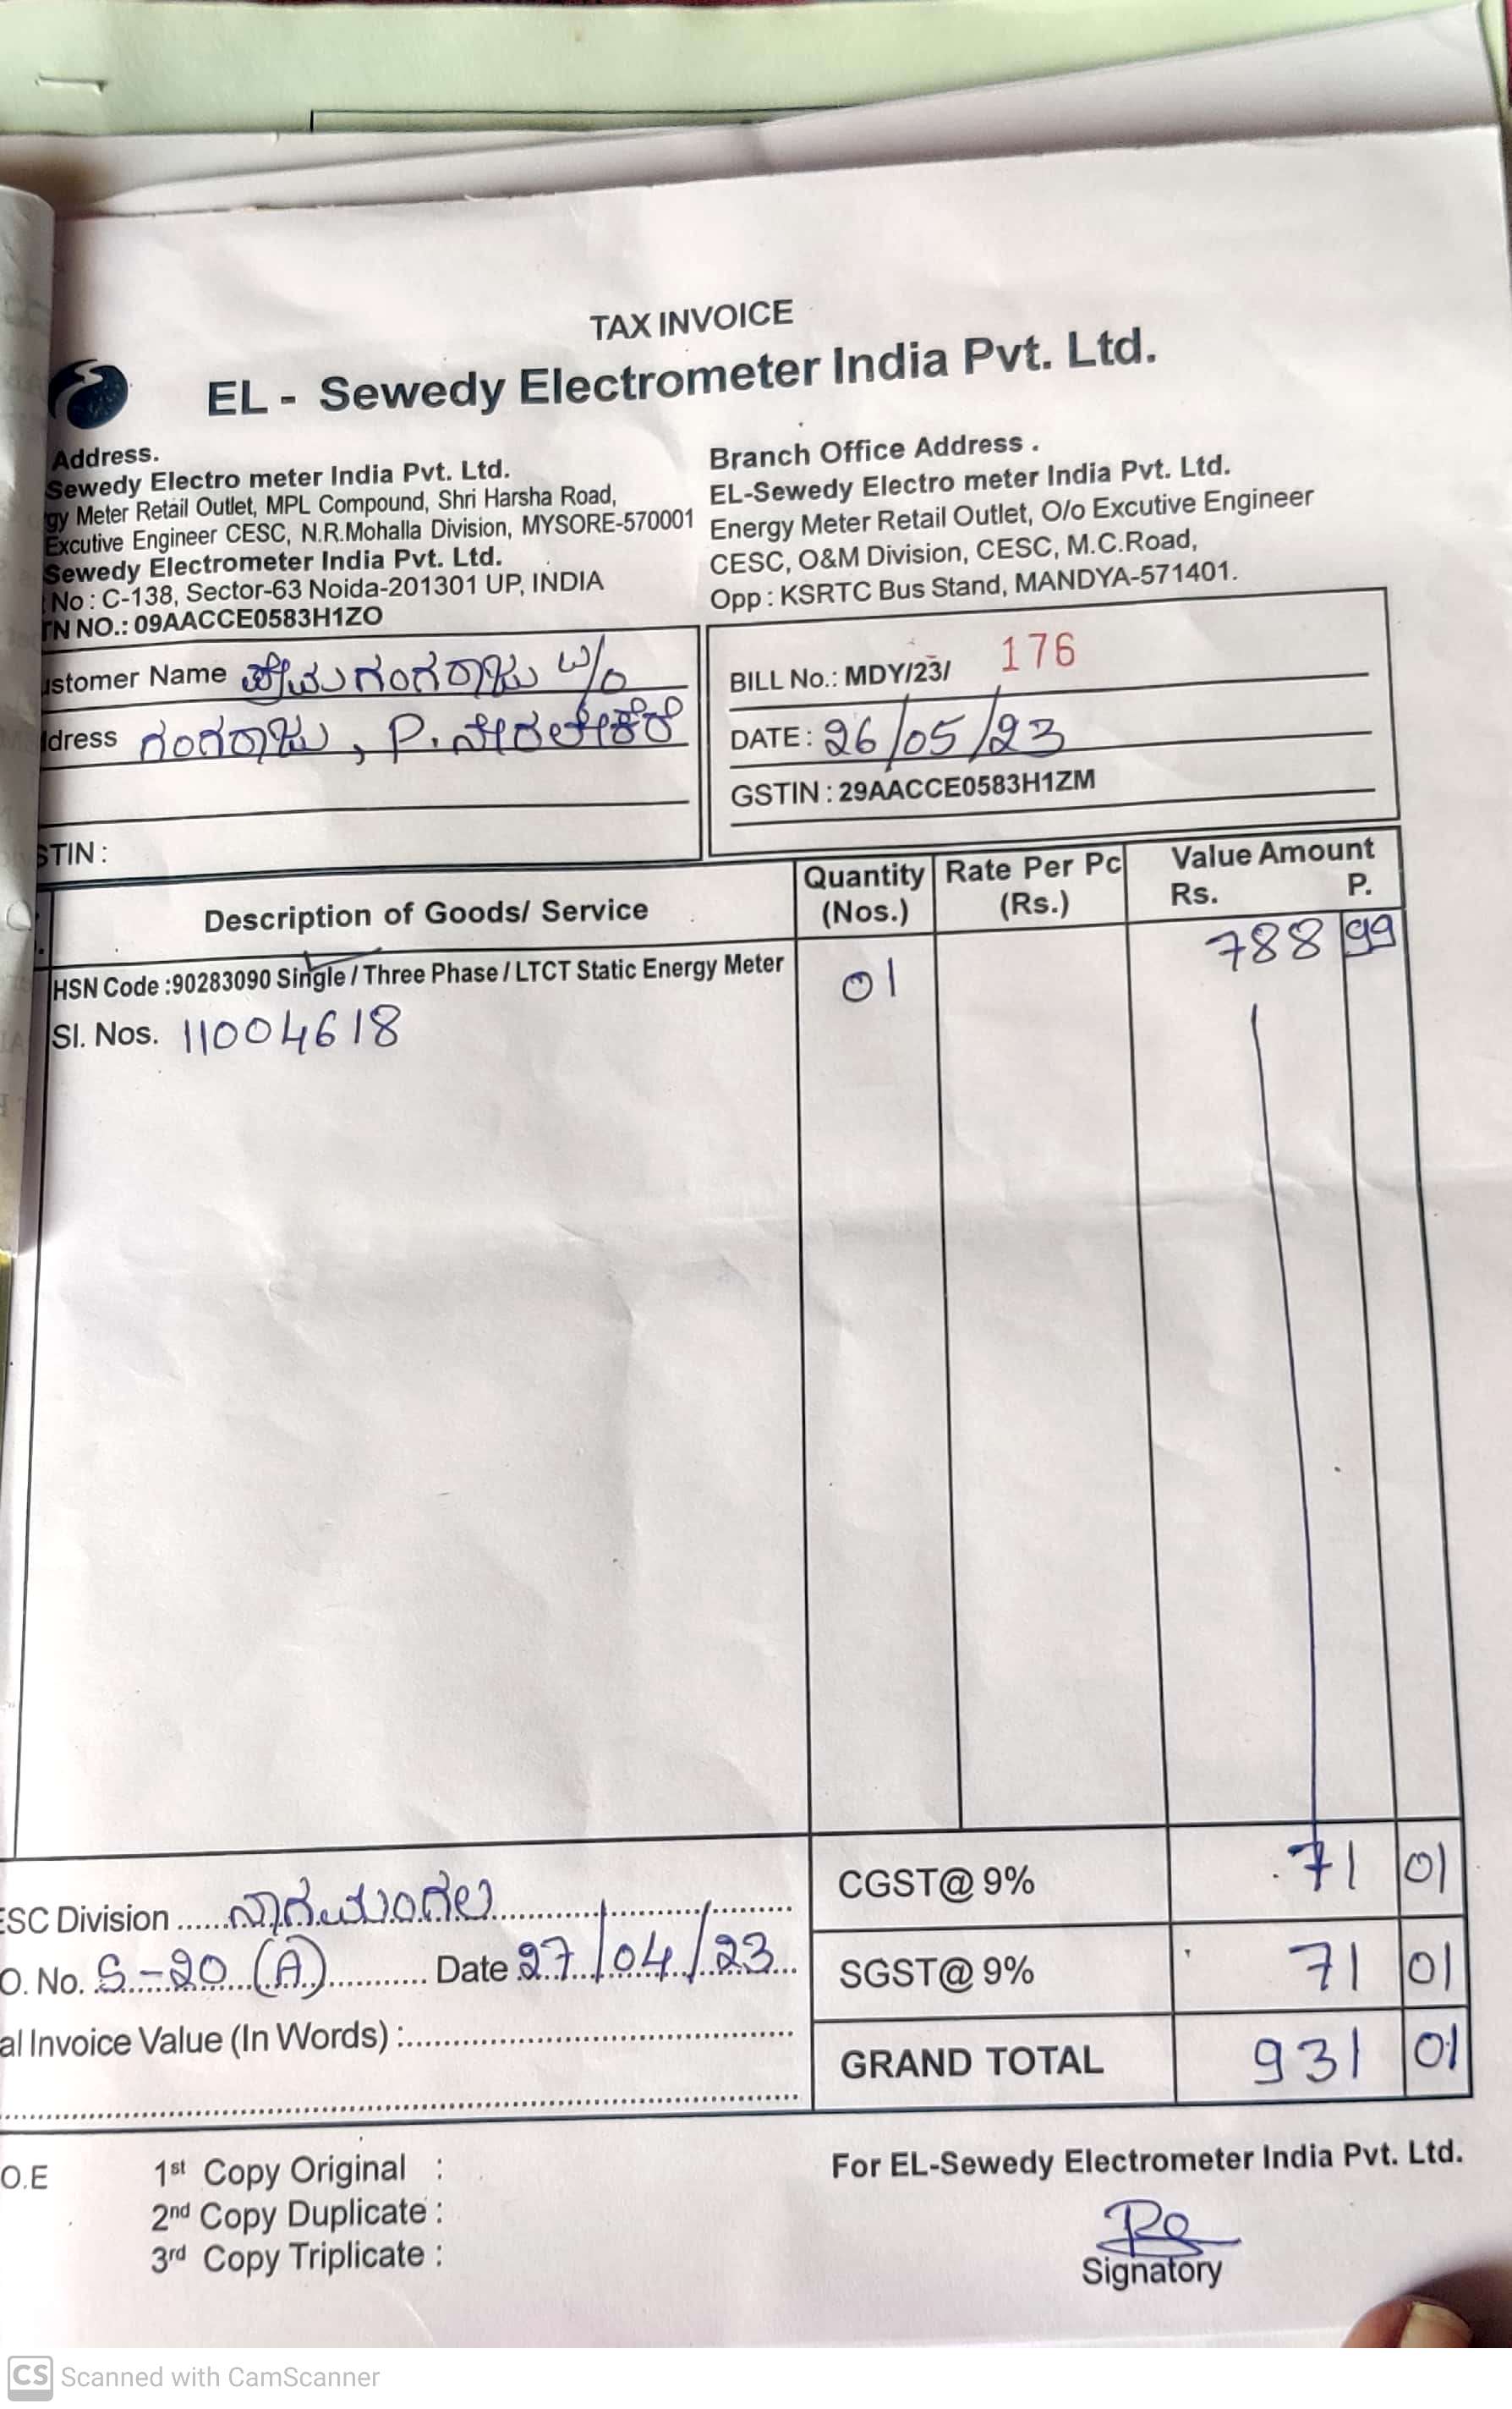 TAX INVOICE
EL - Sewedy Electrometer India Pvt. Ltd.
Address.
Sewedy Electro meter India Pvt. Ltd.
gy Meter Retail Outlet, MPL Compound, Shri Harsha Road,
Excutive Engineer CESC, N.R.Mohalla Division, MYSORE-570001
Sewedy Electrometer India Pvt. Ltd.
No : C-138, Sector-63 Noida-201301 UP, INDIA
TN NO.: 09AACCE0583H1ZO
Branch Office Address .
EL-Sewedy Electro meter India Pvt. Ltd.
Energy Meter Retail Outlet, O/o Excutive Engineer
CESC, O&M Division, CESC, M.C.Road,
Opp : KSRTC Bus Stand, MANDYA-571401.
ustomer Name ಪ್ರೇಮಗಂಗರಾಜು W/o
ddress ಗಂಗರಾಜು, P. ನೇರಲೇಕೆರೆ
STIN :
BILL No.: MDY/23/ 176
DATE : 26/05/23
GSTIN : 29AACCE0583H1ZM
Description of Goods/ Service Quantity (Nos.) Rate Per Pc (Rs.) Value Amount Rs. P.
HSN Code :90283090 Single / Three Phase / LTCT Static Energy Meter 01 788 99
Sl. Nos. 11004618
ESC Division ...... ನಾಗಮಂಗಲ
O. No. S-20 (A) Date 27/04/23
al Invoice Value (In Words) :
CGST@ 9% 71 01
SGST@ 9% 71 01
GRAND TOTAL 931 01
O.E
1st Copy Original :
2nd Copy Duplicate :
3rd Copy Triplicate :
For EL-Sewedy Electrometer India Pvt. Ltd.
Signatory
CS Scanned with CamScanner